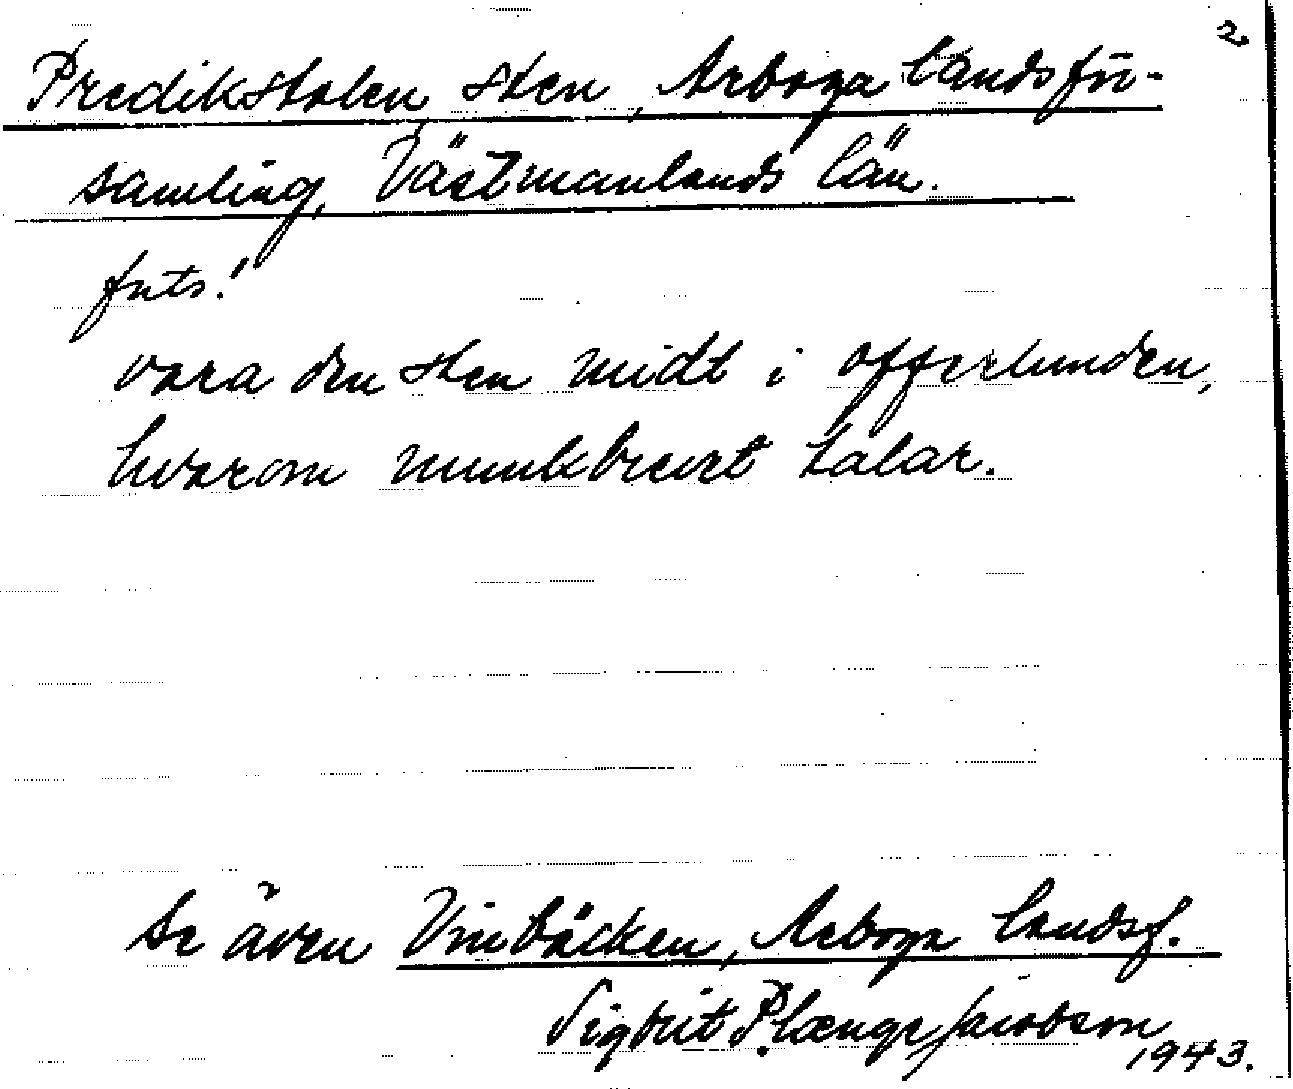 2
Predikstolen sten, Arboga landsför-
samling, Västmanlands län.
forts.!
vara den sten midt i offerlunden,
hvarom munkbrevet talar.
Se även Vinbäcken, Arboga landsf.
Sigbrit Plænge Jacobson
1943.